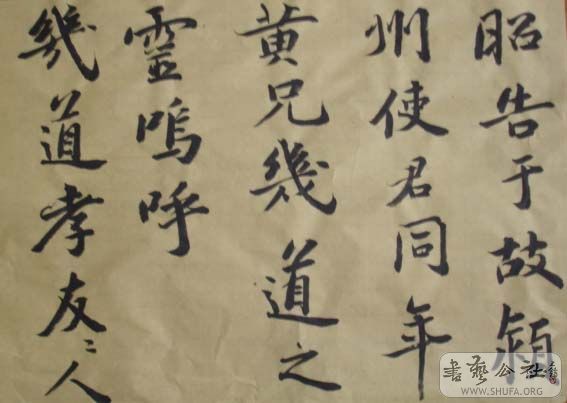 昭告于故潁
州使君同年
黄兄幾道之
靈嗚呼
幾道孝友〻人
書藝公社
WWW.SHUFA.ORG